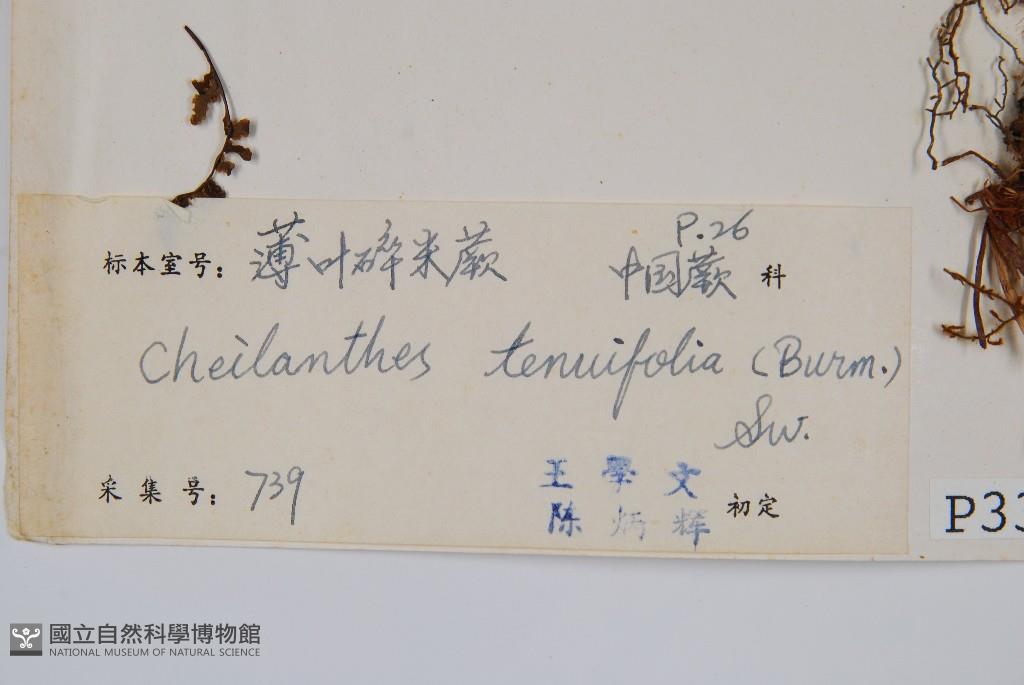 P.26
标本室号: 薄叶碎米蕨 中国蕨 科
Cheilanthes tenuifolia (Burm.)
Sw.
采集号: 739
王學文
陈炳辉 初定
P33
國立自然科學博物館
NATIONAL MUSEUM OF NATURAL SCIENCE